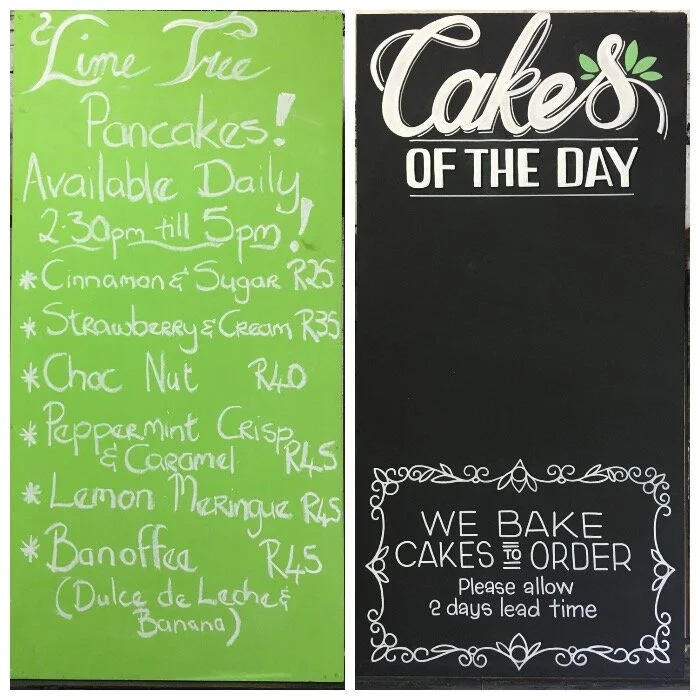 Lime Tree
Pancakes!
Available Daily
2.30pm till 5pm!
* Cinnamon & Sugar R25
* Strawberry & Cream R35
* Choc Nut R40
* Peppermint Crisp
& Caramel R45
* Lemon Meringue R45
* Banoffee R45
(Dulce de Leche &
Banana)
Cakes
OF THE DAY
WE BAKE
CAKES TO ORDER
Please allow
2 days lead time